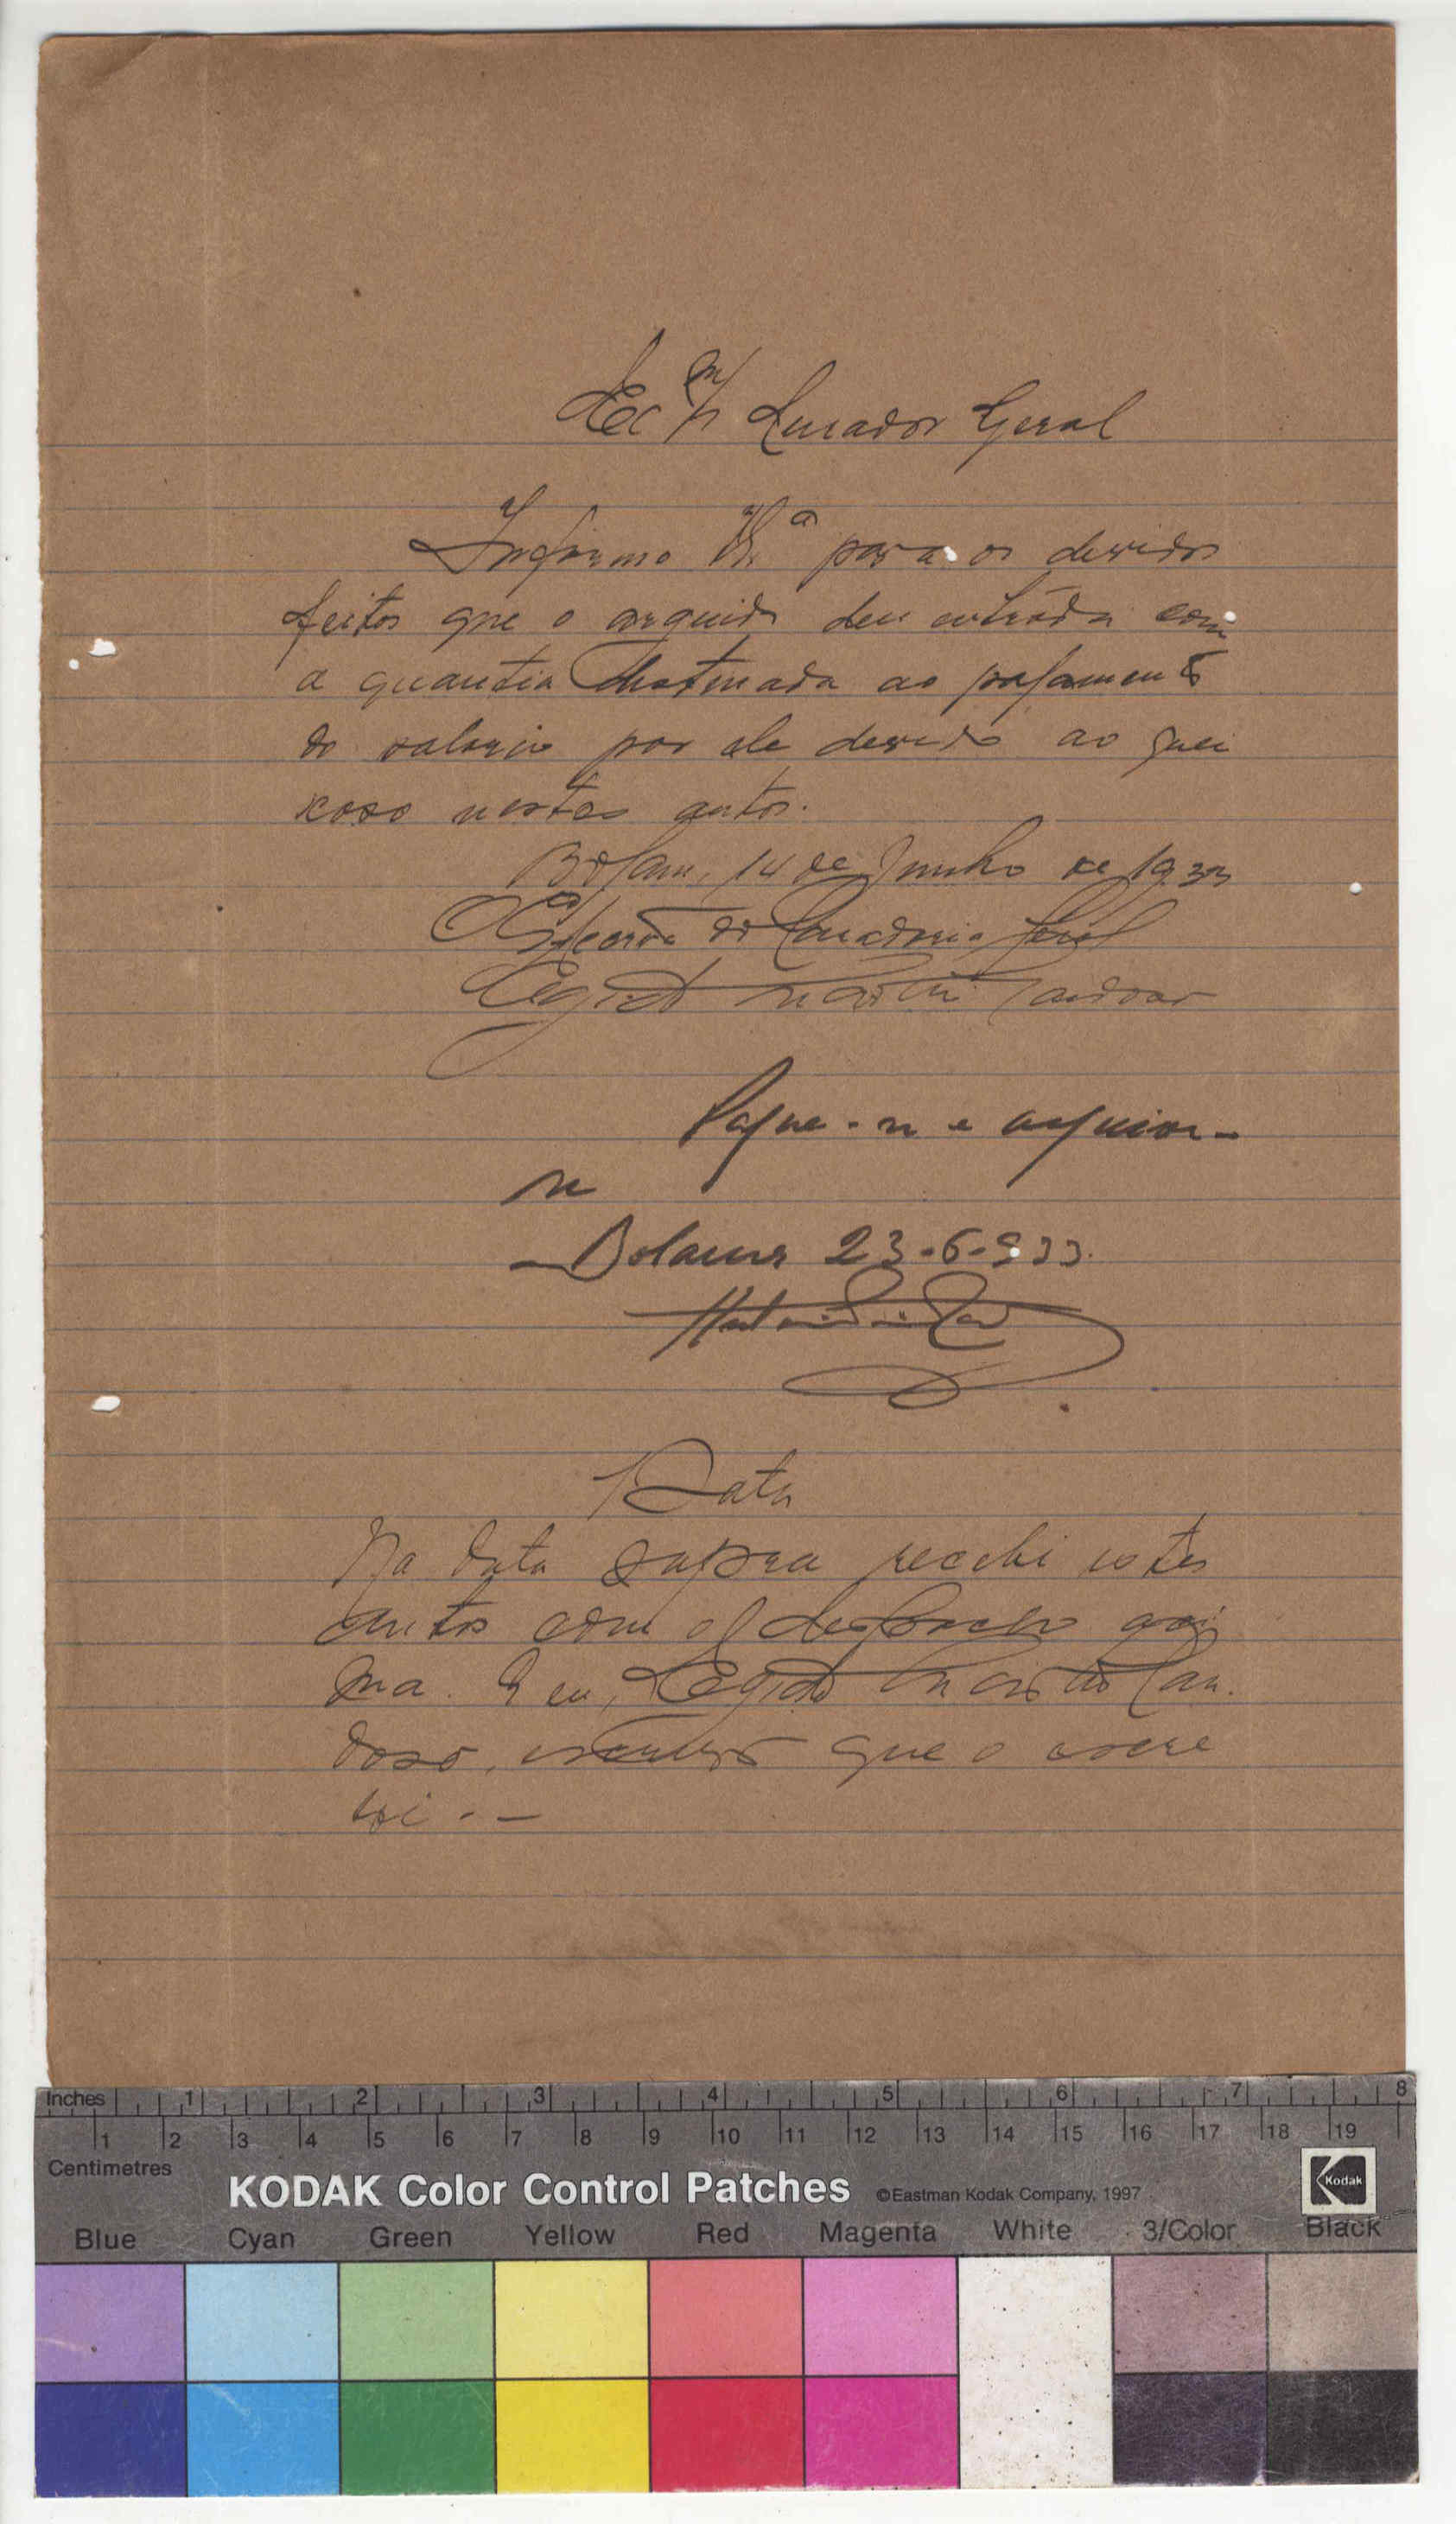 Curador Geral
Informo V. Ex.ª para os devidos
feitos que o arguido deu entrada com
a quantia destinada ao pagamento
do salario por ele devido ao quei
xoso nestes autos.
Bolama, 14 de Junho de 1933
O da Curadoria Geral
Cardoso
Pague-se e arquive-
se
Bolama 23-6-933.
Data
Na data supra recebi estes
autos com o despacho aci
ma. E eu, Car-
doso, que o escre
vi. —
Inches 1 2 3 4 5 6 7 8
1 2 3 4 5 6 7 8 9 10 11 12 13 14 15 16 17 18 19
Centimetres
KODAK Color Control Patches ©Eastman Kodak Company, 1997 Kodak
Blue Cyan Green Yellow Red Magenta White 3/Color Black